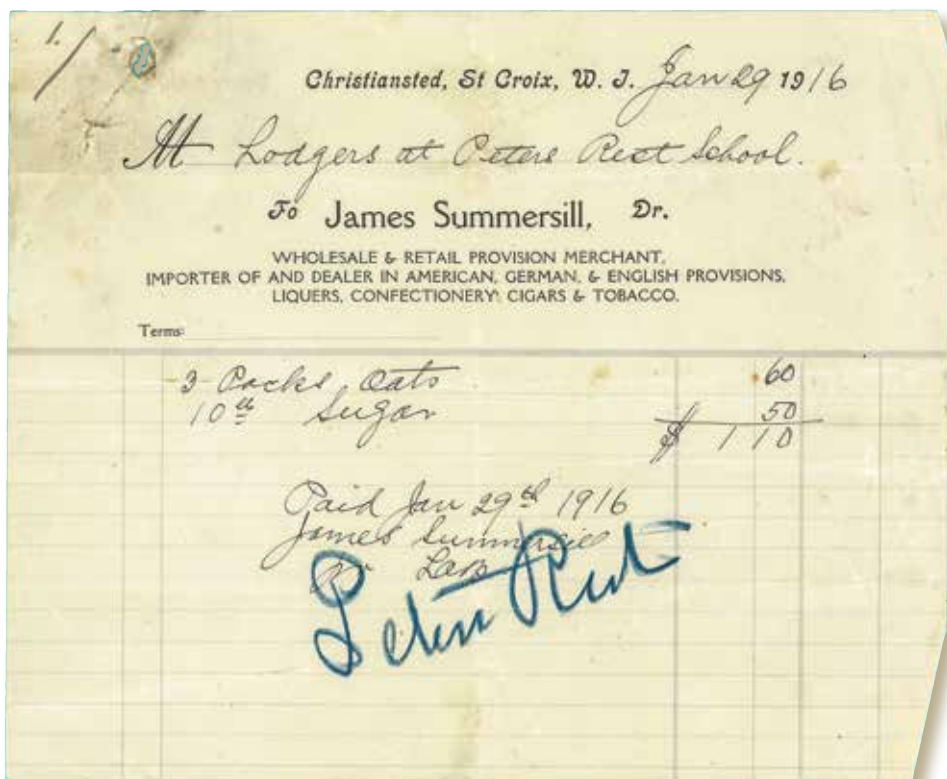 1.
Christiansted, St Croix, W. I. Jan 29 1916
Mt Lodgers at Peters Rest School.
To James Summersill, Dr.
WHOLESALE & RETAIL PROVISION MERCHANT,
IMPORTER OF AND DEALER IN AMERICAN, GERMAN, & ENGLISH PROVISIONS,
LIQUERS, CONFECTIONERY, CIGARS & TOBACCO.
Terms:
3 Packs Oats 60
10 lb Sugar 50
$ 1 10
Paid Jan 29th 1916
James Summersill
pr
Peters Rest